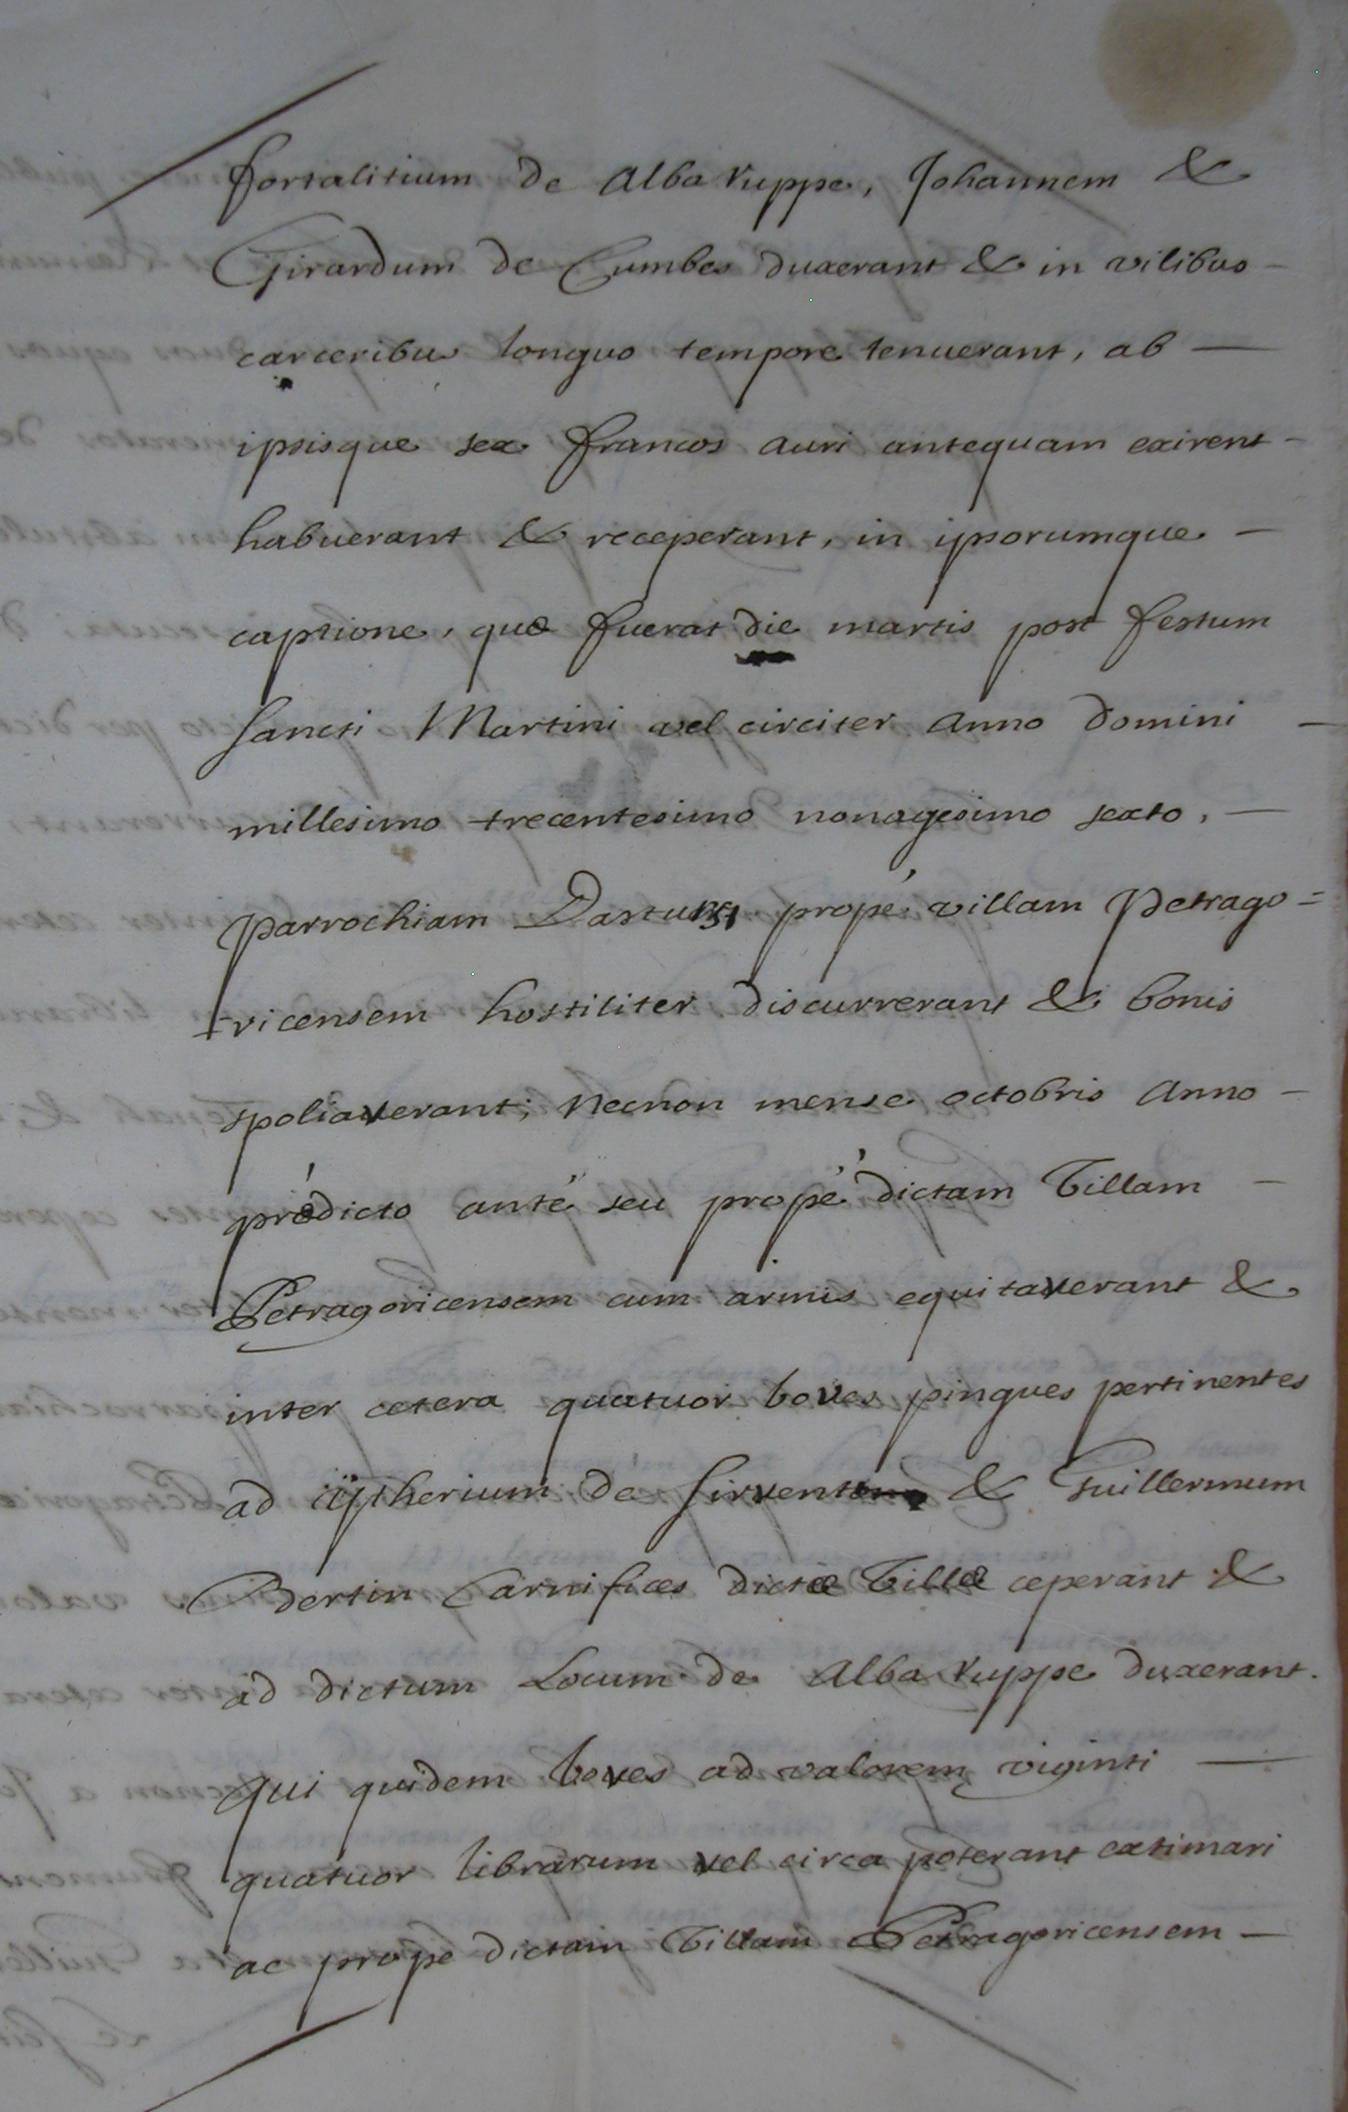 fortalitium de Alba ruppe, Johannem &
Girardum de Cumbes duxerant & in vilibus
carceribus longuo tempore tenuerant, ab
ipsisque sex francos auri antequam exirent
habuerant & receperant, in ipsorumque
captione, quæ fuerat die martis post festum
sancti Martini vel circiter anno domini
millesimo trecentesimo nonagesimo sexto,
parrochiam prope villam Petrago=
ricensem hostiliter discurrerant & bonis
spoliaverant; necnon mense octobris anno
prædicto anté seu propé dictam Villam
Petragoricensem cum armis equitaverant &
inter cetera quatuor boves pingues pertinentes
ad ÿtherium de & Guillermum
Bertin Carnifices dictæ Villæ ceperant &
ad dictum Locum de Alba ruppe duxerant.
qui quidem boves ad valorem viginti
quatuor librarum vel circa poterant extimari
ac propé dictam Villam Petragoricensem